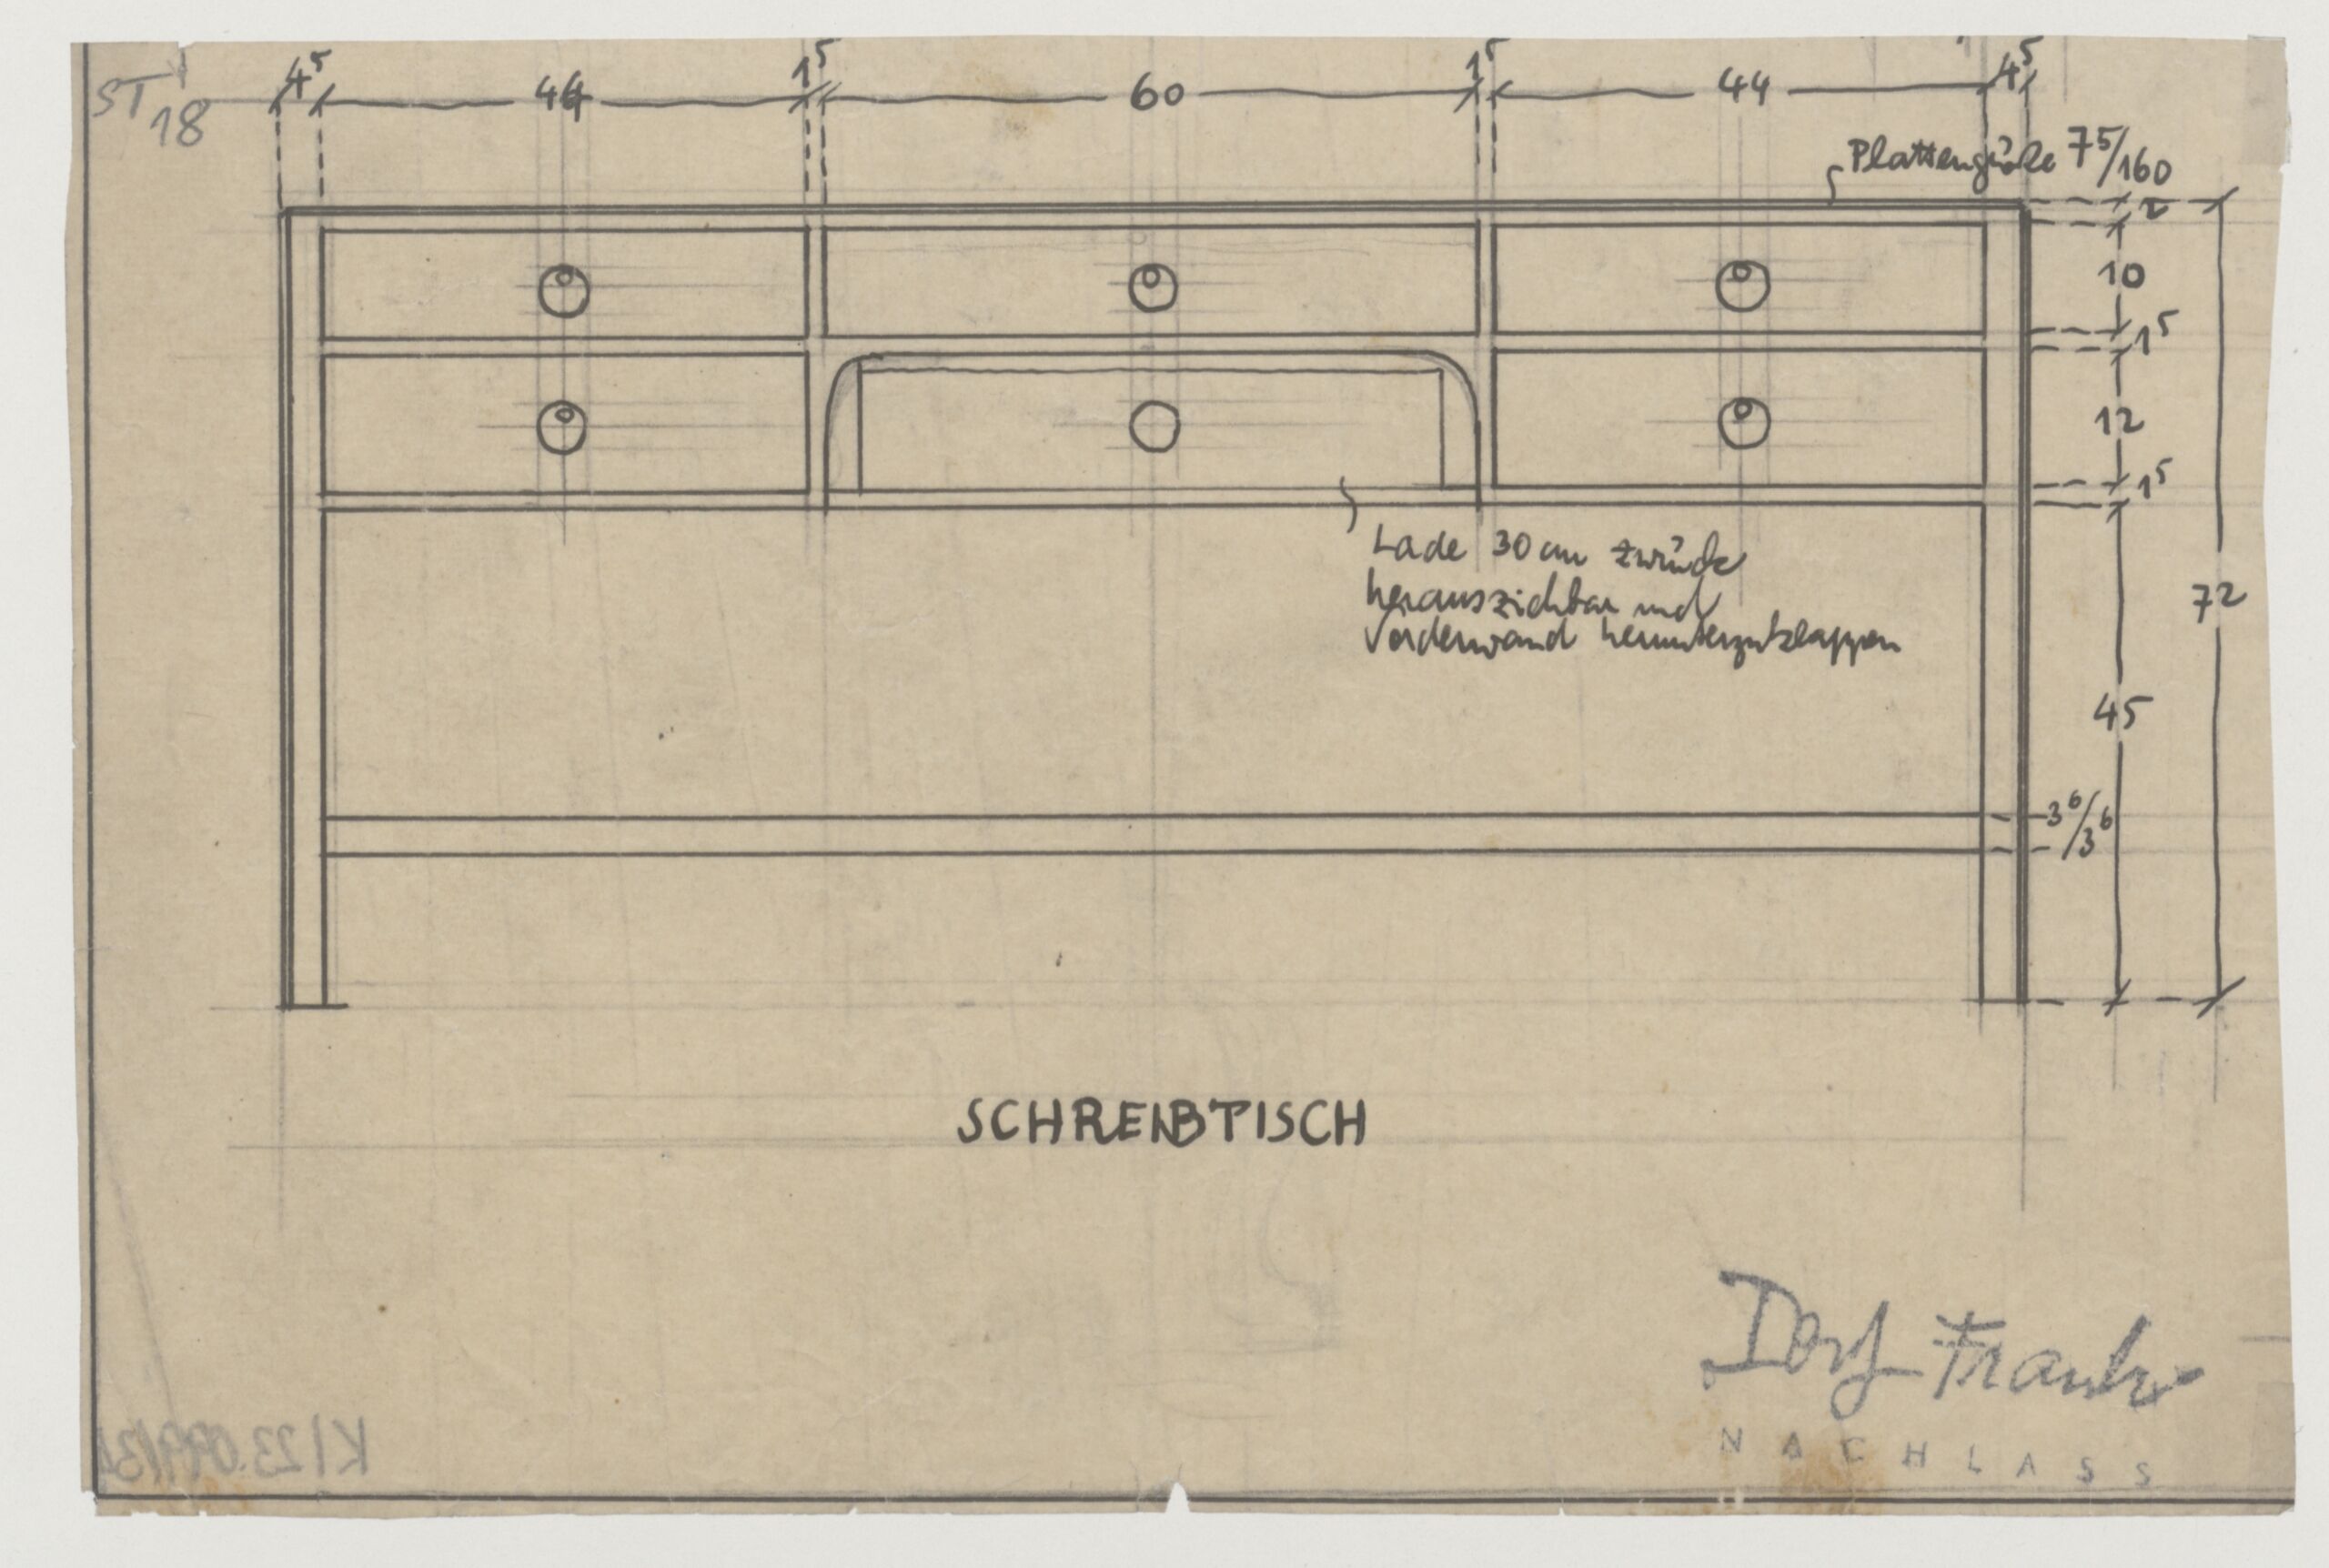 ST 18
4⁵ 44 1⁵ 60 1⁵ 44 4⁵
Plattengröße 75/160
2
10
1⁵
12
1⁵
Lade 30 cm zurück
herausziehbar und
Vorderwand herunterzuklappen
72
45
3⁶/3⁶
SCHREIBTISCH
Josef Frank
NACHLASS